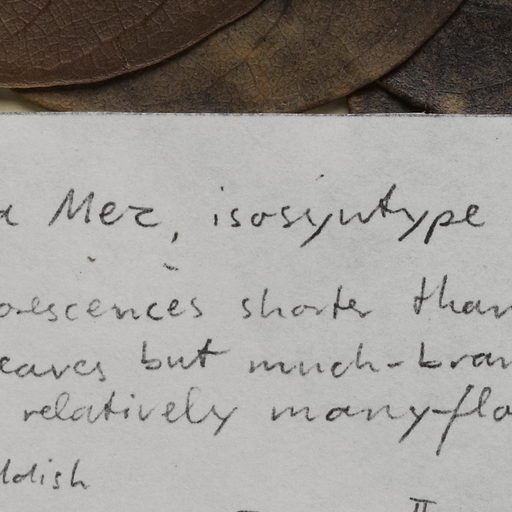 a Mez, isosyntype
orescences shorter than
eaves but much-bran
relatively many-flo
ddish
II